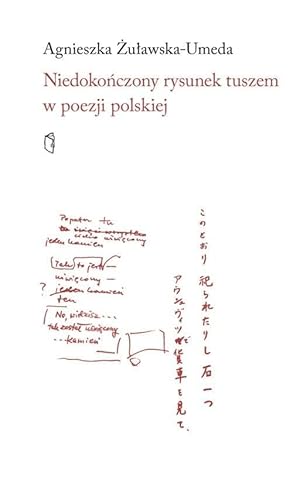 Agnieszka Żuławska-Umeda
Niedokończony rysunek tuszem
w poezji polskiej
Popatrz tu
jeden kamień
(Tak) to jest —
? jeden kamień
ten
No, widzisz...
tak został
... kamień
このとおり 祀られたりし 石一つ
アウシュヴィツ 貨車を見て、